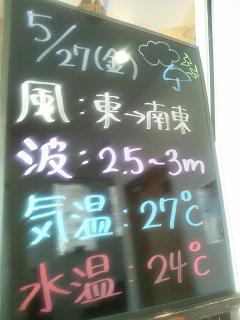 5/27(金)
風:東→南東
波:2.5~3m
気温:27℃
水温:24℃